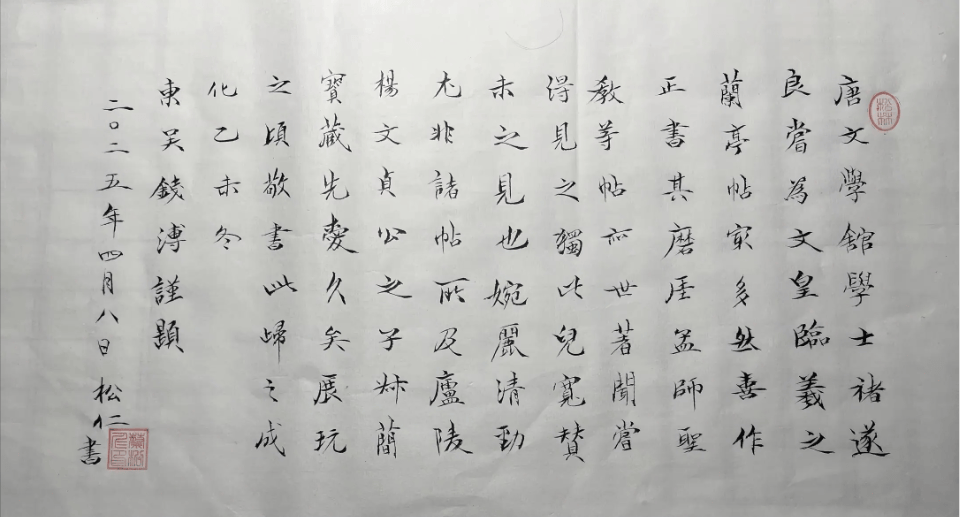 唐文學館學士褚遂
良嘗為文皇臨羲之
蘭亭帖寂多然善作
正書其磨崖孟師聖
教等帖亦世著聞嘗
得見之獨此兒寬贊
未之見也婉麗清勁
尤非諸帖所及廬陵
楊文貞公之子叔簡
寶藏先爱久矣展玩
之頃敬書此歸之成
化乙未冬
東吴錢溥謹題
二〇二五年四月八日 松仁書